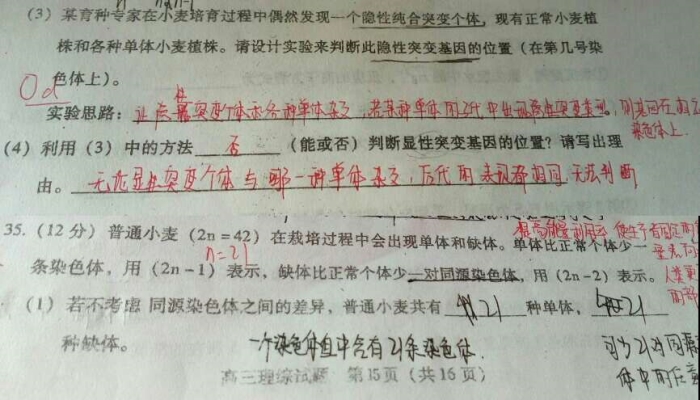 (3) 某育种专家在小麦培育过程中偶然发现一个隐性纯合突变个体，现有正常小麦植
株和各种单体小麦植株。请设计实验来判断此隐性突变基因的位置（在第几号染
色体上）。
实验思路：让 突变个体和各种单体杂交，若某种单体的子代中出现隐性突变类型，则基因在
染色体上.
(4) 利用（3）中的方法 否 （能或否）判断显性突变基因的位置？请写出理
由。 无论显性突变个体与哪一种单体杂交，后代的表现都相同 无法判断
35.（12 分）普通小麦（2n＝42）在栽培过程中会出现单体和缺体。单体比正常个体少一
n=21
条染色体，用（2n－1）表示，缺体比正常个体少一对同源染色体，用（2n－2）表示。
(1) 若不考虑 同源染色体之间的差异，普通小麦共有 21 种单体， 21
种缺体。
一个染色体组中含有21条染色体.
高三理综试题 第15页（共16页）